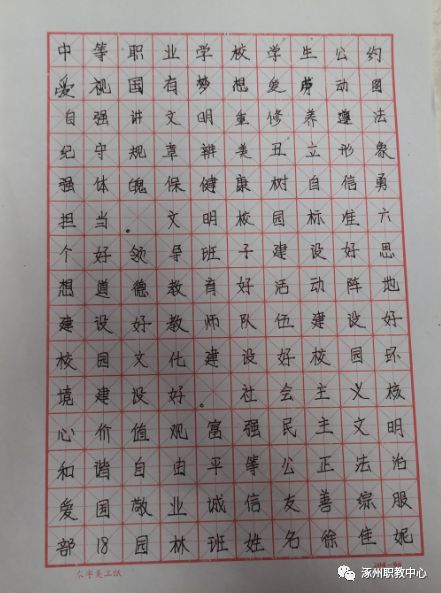 中等职业学校学生公约
爱视国有梦想爱劳动图
自强讲文明重修养遵法
纪守规章辨美丑立形象
强体魄保健康树自信勇
担当。文明校园标准六
个好领导班子建设好思
想道德教育好活动阵地
建设好教师队伍建设好
校园文化建设好校园环
境建设好。社会主义核
心价值观富强民主文明
和谐自由平等公正法治
爱国敬业诚信友善综服
部18园林班姓名徐佳妮
涿州职教中心